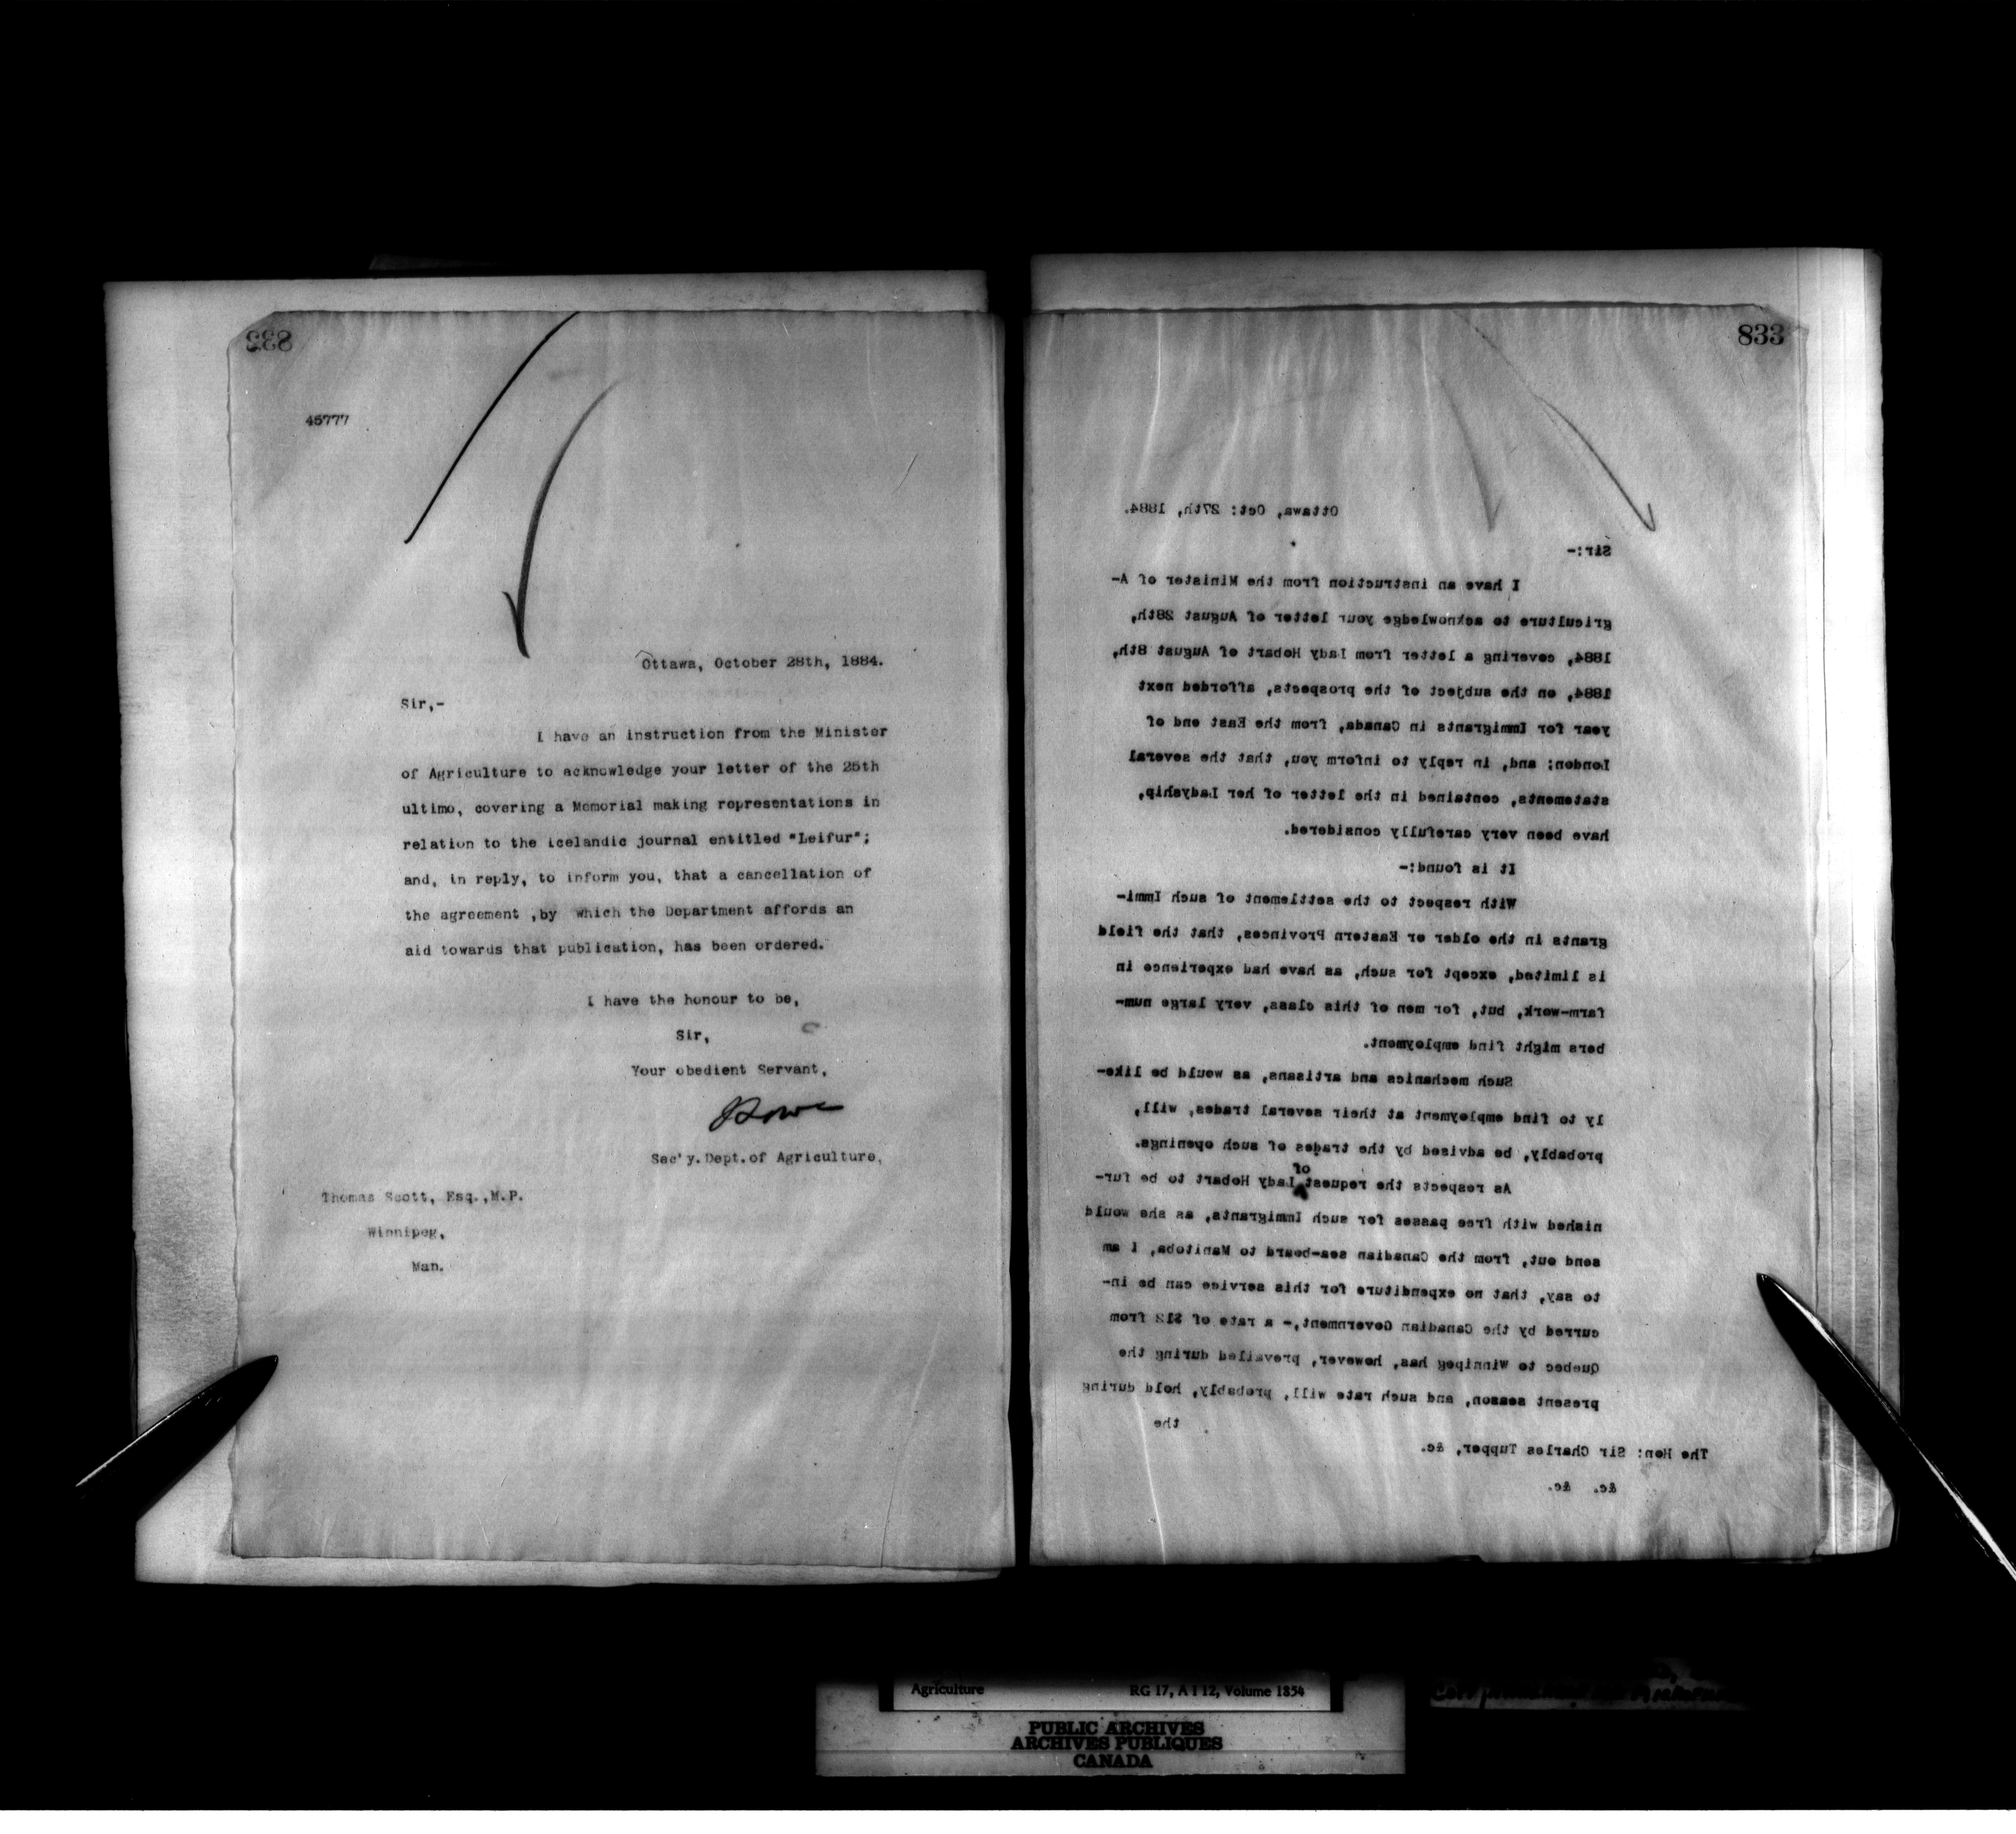 833
45777
Ottawa, October 28th, 1884.
Sir,-
I have an instruction from the Minister
of Agriculture to acknowledge your letter of the 25th
ultimo, covering a Memorial making representations in
relation to the Icelandic journal entitled "Leifur";
and, in reply, to inform you, that a cancellation of
the agreement ,by which the Department affords an
aid towards that publication, has been ordered.
I have the honour to be,
Sir,
Your obedient Servant,
Sec'y. Dept. of Agriculture,
Thomas Scott, Esq.,M.P.
Winnipeg,
Man.
833
Ottawa, Oct: 27th, 1884.
Sir:-
I have an instruction from the Minister of A-
griculture to acknowledge your letter of August 28th,
1884, covering a letter from Lady Hobart of August 8th,
1884, on the subject of the prospects, afforded next
year for Immigrants in Canada, from the East end of
London; and, in reply to inform you, that the several
statements, contained in the letter of her Ladyship,
have been very carefully considered.
It is found:-
With respect to the settlement of such Immi-
grants in the older or Eastern Provinces, that the field
is limited, except for such, as have had experience in
farm-work, but, for men of this class, very large num-
bers might find employment.
Such mechanics and artisans, as would be like-
ly to find employment at their several trades, will,
probably, be advised by the trades of such openings.
As respects the request of Lady Hobart to be fur-
nished with free passes for such Immigrants, as she would
send out, from the Canadian sea-board to Manitoba, I am
to say, that no expenditure for this service can be in-
curred by the Canadian Government,- a rate of $12 from
Quebec to Winnipeg has, however, prevailed during the
present season, and such rate will, probably, hold during
the
The Hon: Sir Charles Tupper, &c.
&c. &c.
Agriculture RG 17, A I 12, Volume 1854
PUBLIC ARCHIVES
ARCHIVES PUBLIQUES
CANADA